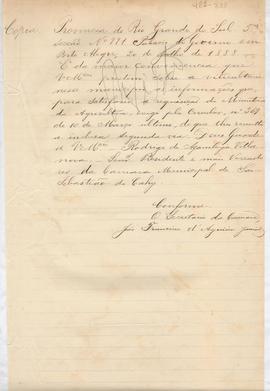 Copia. Provincia do Rio Grande do Sul 5ª
secção Nº 771 Palacio do Governo em
Porto Alegre, 20 de Julho de 1888.
É da maior conveniencia que
VMces prestem sobre a viticultura
nesse municipio as informações que,
para satisfazer a requisição do Ministerio
da Agricultura, exigi pela Circular nº
de 10 de Março ultimo, de que lhes remetto
a inclusa segunda via. Deus Guarde
a VMces Rodrigo de Azambuja Villa
nova. Snrs. Presidente e mais Vereado
res da Camara Municipal de São
Sebastião do Cahy.
Conforme
O Secretario da Camara
José Francisco d'